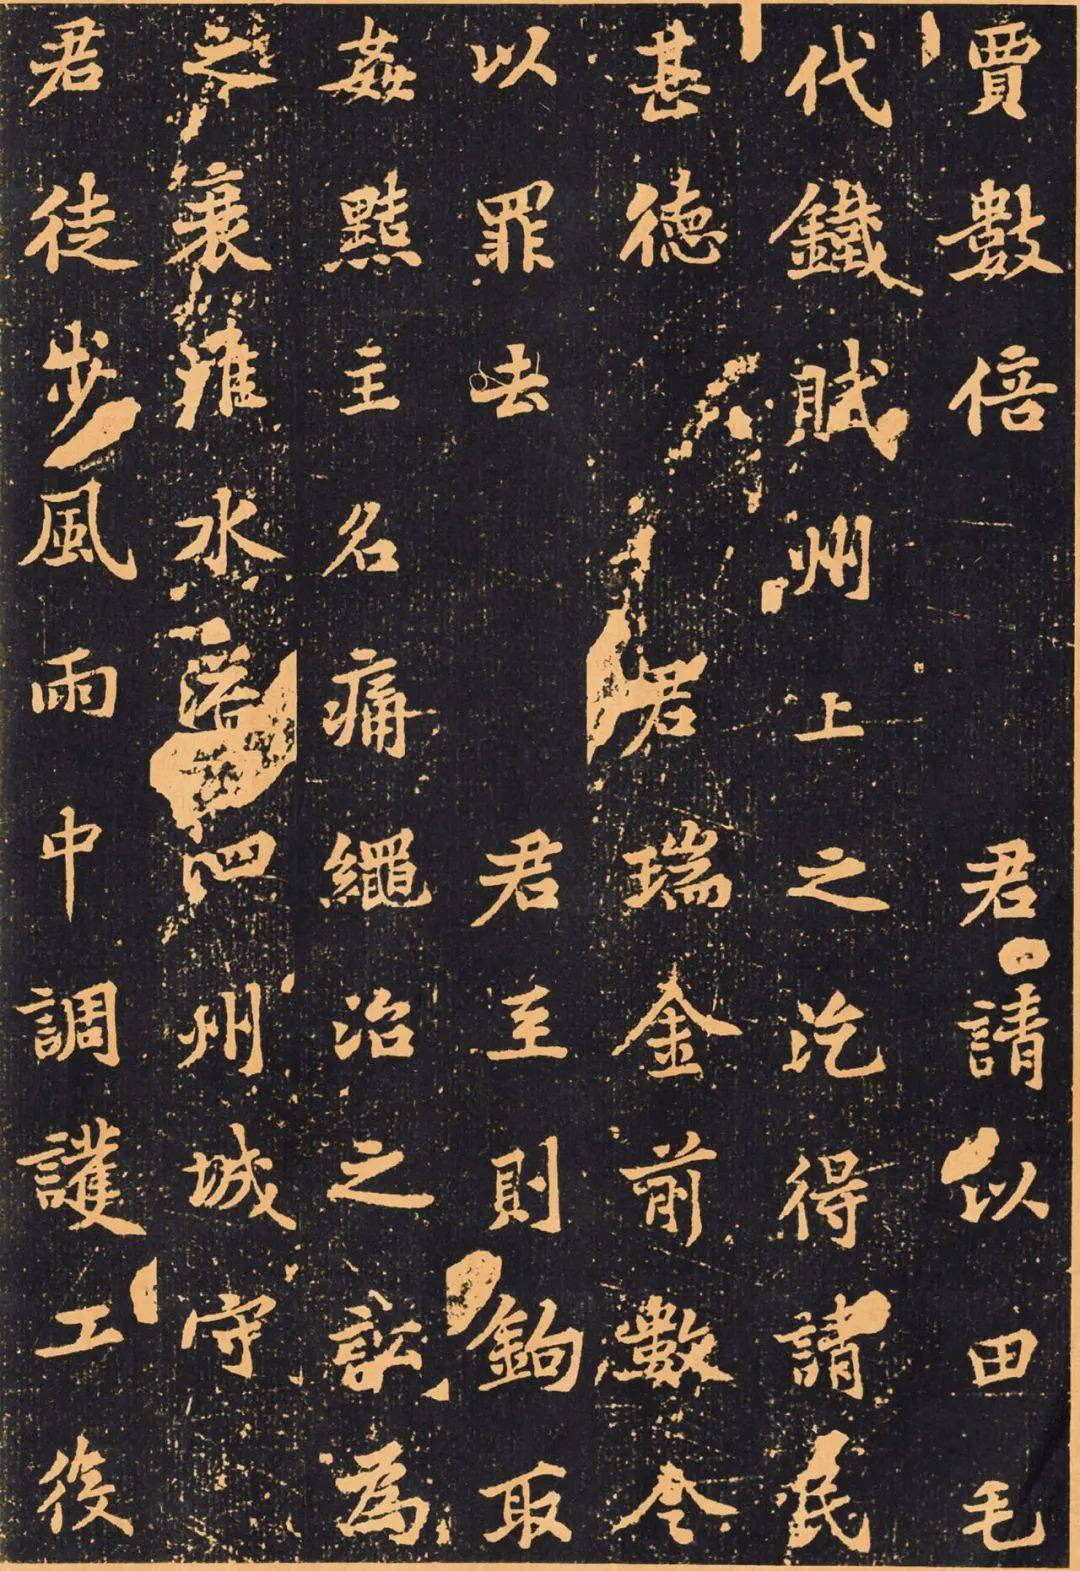 賈數倍 君請以田毛
代鐵賦州上之汔得請民
甚德 君瑞金前數令
以罪去 君至則鉤取
姦黠主名痛繩治之訟為
之衰淮水溢泗州城守
君徒步風雨中調護工役